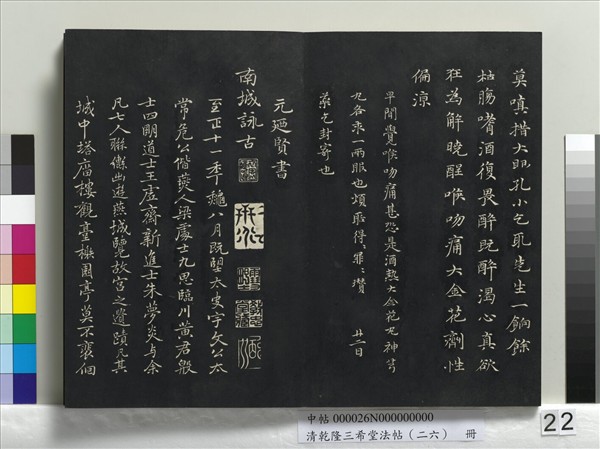 莫嗔措大眼孔小乞取先生一餉餘
枯腸嗜酒復畏醉既醉渴心真欲
狂為解曉酲喉吻痛大金花劑性
偏涼
早間覺喉吻痛甚恐是酒熱大金花丸神芎
丸各求一兩服也煩
廿二日
元迺賢書
南城詠古
至正十一年秋八月既望太史宇文公太
常危公偕燕人梁處士九思臨川黃君殷
士四明道士王虛齋新進士朱夢炎與余
凡七人聯轡出遊燕城覽故宮之遺蹟凡其
城中塔廟樓觀臺榭園亭莫不裴佪
中帖 000026N000000000
清乾隆三希堂法帖(二六) 冊
22